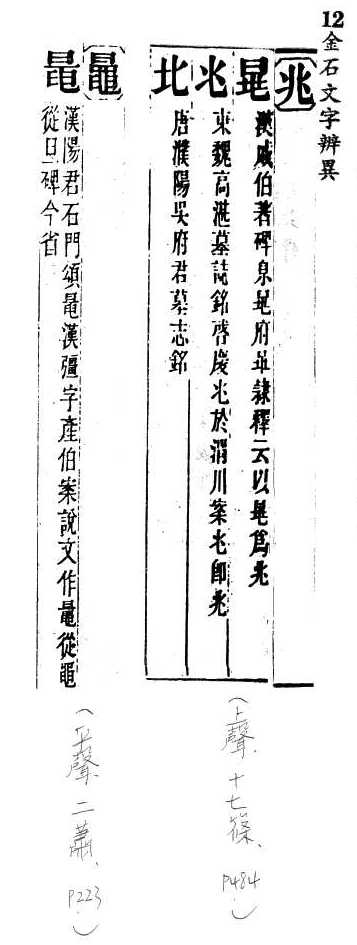 12
金石文字辨異
〔兆〕
晁 漢戚伯著碑泉晁府丞隸釋云以晁爲兆
𠧞 東魏高湛墓誌銘啓慶𠧞於渭川案𠧞即兆
北 唐濮陽吳府君墓志銘
(上聲、十七篠、P484)
〔鼂〕
鼌 漢陽君石門頌鼌漢彊字產伯案說文作鼂從黽從旦碑今省
(平聲、二蕭、P223)